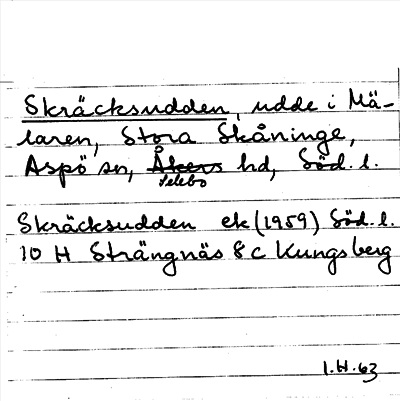 Skräcksudden, udde i Mä-
laren, Stora Skåninge,
Aspö sn, Åkers hd, Söd. l.
Selebo
Skräcksudden ek (1959) Söd. l.
10 H Strängnäs 8 c Kungsberg
I.H. 63